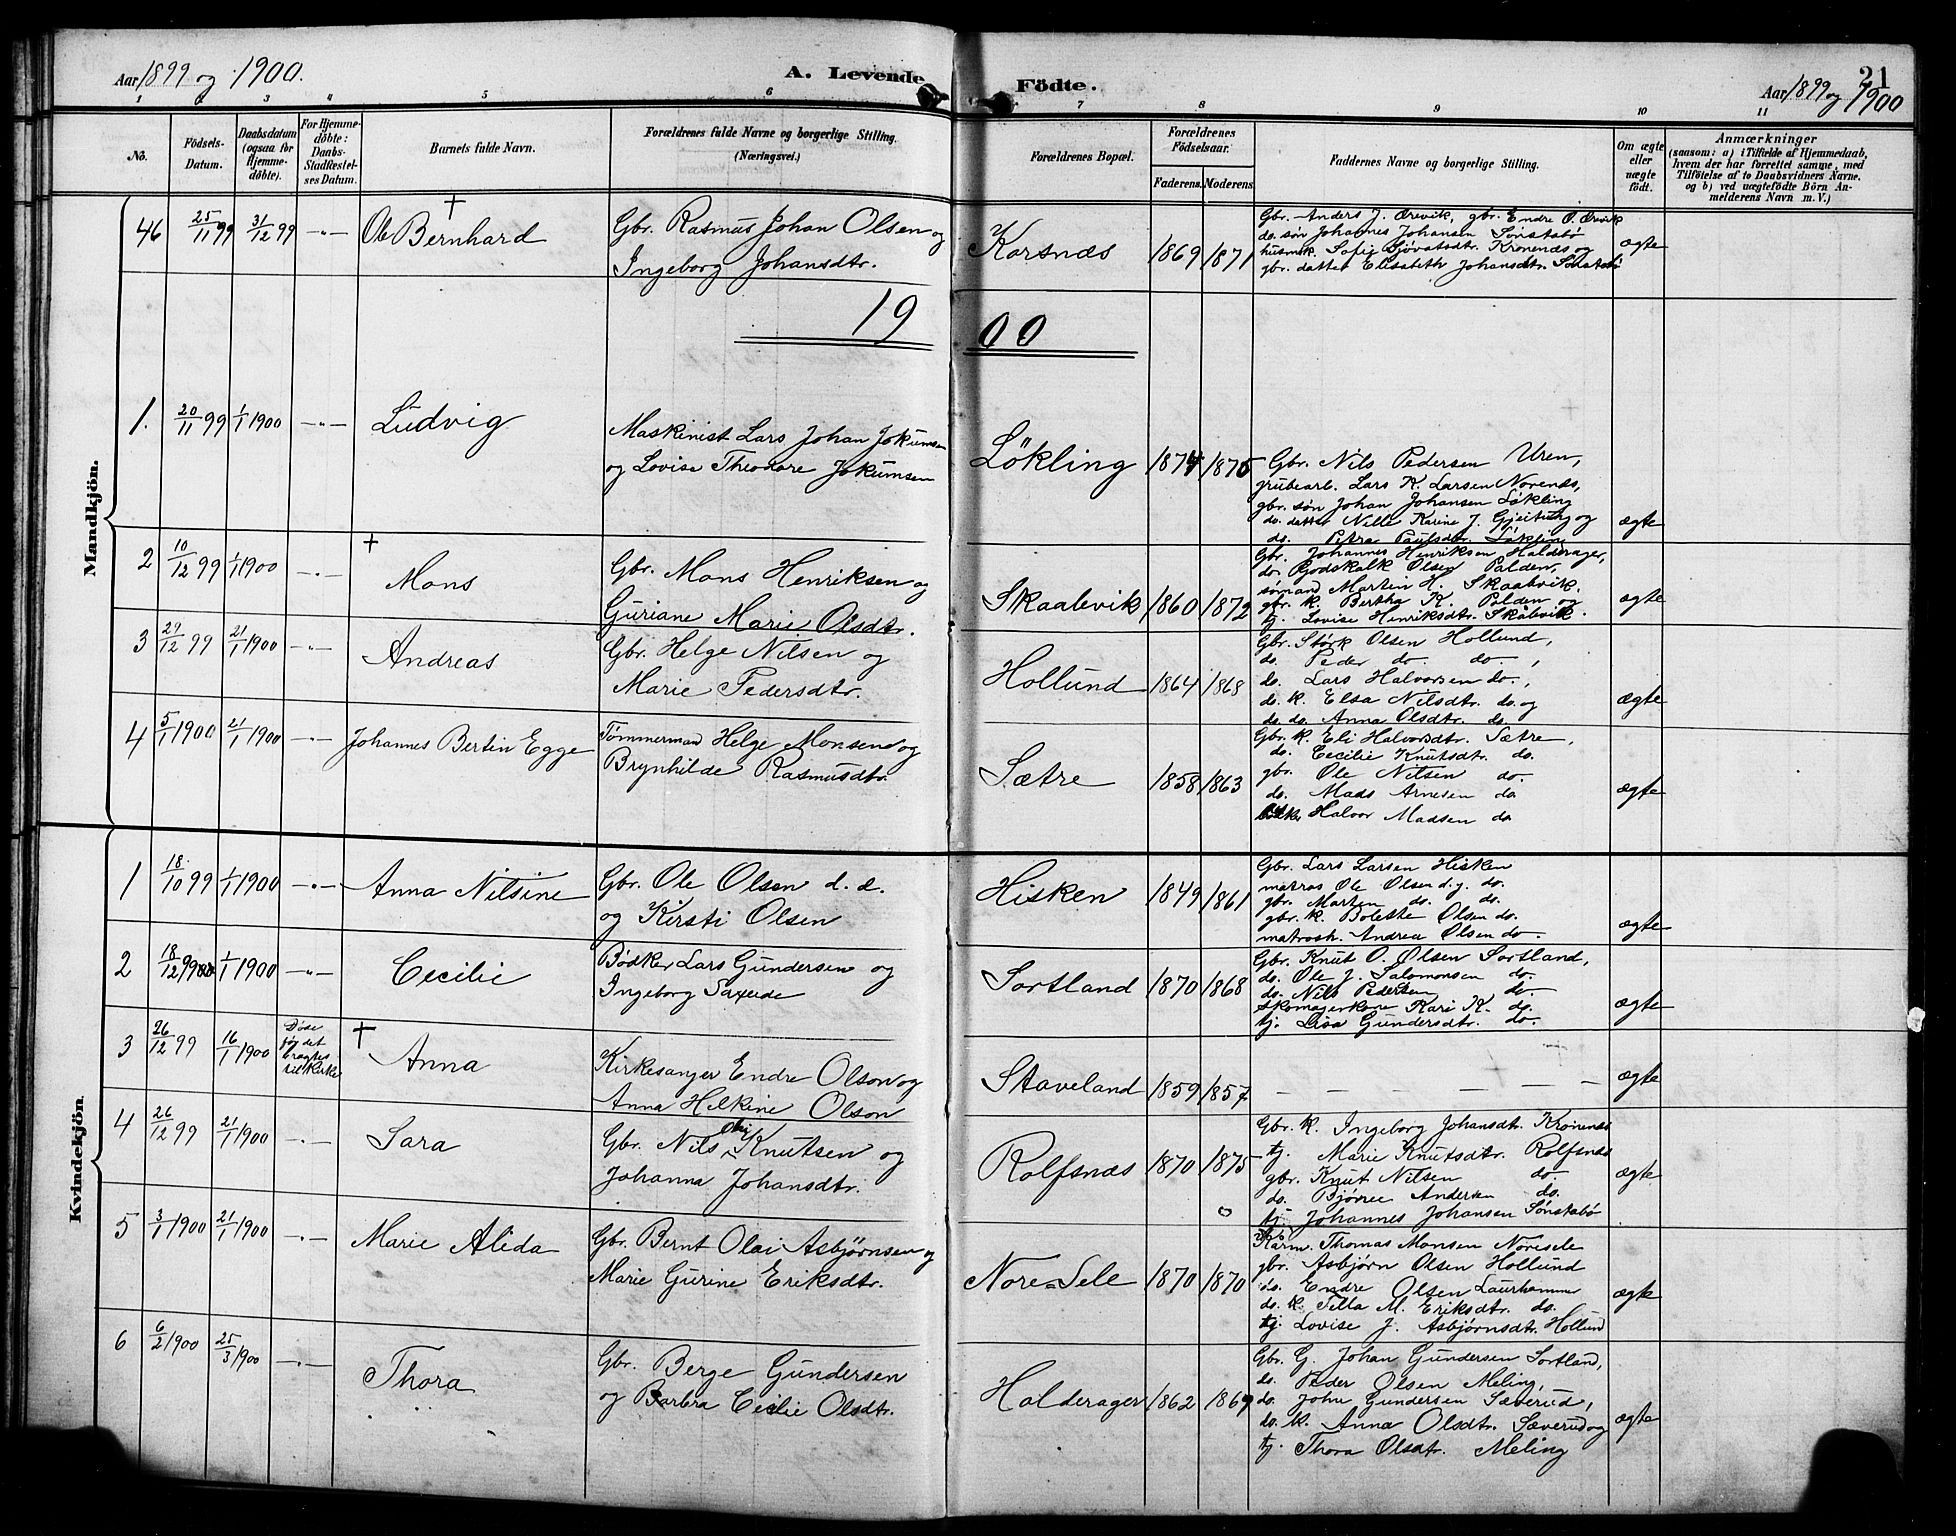 Aar 1899 og 1900.
A. Levende Födte.
21
Aar 1899 og 1900
1 2 3 4 5 6 7 8 9 10 11
No.
Födsels-Datum.
Daabsdatum (ogsaa for Hjemme-döbte).
For Hjemme-döbte: Daabs-Stadfæstel-ses Datum.
Barnets fulde Navn.
Forældrenes fulde Navne og borgerlige Stilling. (Næringsvei.)
Forældrenes Bopæl.
Forældrenes Födselsaar.
Faderens. Moderens.
Faddernes Navne og borgerlige Stilling.
Om ægte eller uægte födt.
Anmærkninger
(saasom: a) i Tilfælde af Hjemmedaab, hvem der har forrettet samme, med Tilföielse af to Daabsvidners Navne. og b) ved uægtefödte Börn Anmelderens Navn m. V.)
Mandkjön.
46 25/11 99 31/12 99 -"- Ole Bernhard +
Gbr. Rasmus Johan Olsen og
Ingeborg Johansdtr.
Korsnæs 1869 1871
Gbr. Anders J. Ørevik, gbr. Endre O. Ørevik
do. søn Johannes Johansen Sønstabø
husmk. Sofie Sjøvatsdtr. Kronenæs og
gbr. datter Elisabeth Johansdtr. Sønstabø
ægte
19 00
1. 20/11 99 1/1 1900 -"- Ludvig
Maskinist Lars Johan Jokumsen
og Lovise Theodore Jokumsen
Løkling 1874 1875
Gbr. Nils Pedersen Uren,
grubearb. Lars K. Larsen Norenæs,
gbr. søn Johan Johansen Løkling
do. datter Nille Karine J. Gjeitung og
do. Petra Paulsdtr. Løkling
ægte
2 10/12 99 1/1 1900 -"- Mons +
Gbr. Mons Henriksen og
Guriane Marie Olsdtr.
Skaalevik 1860 1872
Gbr. Johannes Henriksen Halderager,
do. Godskalk Olsen Valden,
sømand Martin H. Skaalevik.
gbr. k. Bertha K. Valden og
tj. Lovise Henriksdtr. Skålevik.
ægte
3 29/12 99 21/1 1900 -"- Andreas
Gbr. Helge Nilsen og
Marie Pedersdtr.
Hollund 1864 1868
Gbr. Størk Olsen Hollund,
do. Peder do. do.,
do. Lars Halvorsen do.,
do. k. Elsa Nilsdtr. do. og
do. do. Anna Olsdtr. do.
ægte
4 5/1 1900 21/1 1900 -"- Johannes Bertin Egge
Tömmermand Helge Monsen og
Brynhilde Rasmusdtr.
Sætre 1858 1863
Gbr. k. Eli Halvorsdtr. Sætre,
do. Cecilie Knutsdtr. do.
gbr. Ole Nilsen do.
do. Mads Arnesen do.
Halvor Madsen do
ægte
Kvindekjön.
1 18/10 99 1/1 1900 -"- Anna Nilsine
Gbr. Ole Olsen d. e.
og Kirsti Olsen
Hisken 1849 1861
Gbr. Lars Larsen Hisken
matros Ole Olsen d. y. do.
gbr. Morten do. do.
gbr. k. Bolette Olsen do.
matrosk. Andrea Olsen do.
ægte
2 18/12 99 1/1 1900 -"- Cecilie
Bødker Lars Gundersen og
Ingeborg Saxeide
Sortland 1870 1868
Gbr. Knut O. Olsen Sortland,
do. Ole J. Salomonsen do.
do. Nils Pedersen do.
skomagerkone Kari K. do.
tj. Lisa Gundersdtr. do.
ægte
3 26/12 99 16/1 1900 Døde før det bragtes til Kirke + Anna
Kirkesanger Endre Olson og
Anna Helkine Olson
Staveland 1859 1857
— — — — — —
ægte
4 26/12 99 21/1 1900 -"- Sara
Gbr. Nils Olai Knutsen og
Johanna Johansdtr.
Rolfsnæs 1870 1875
Gbr. k. Ingeborg Johansdtr. Kronenæs
tj. Marie Knutsdtr. Rolfsnæs
gbr. Knut Nilsen do.
do. Bjørne Andersen do.
tj. Johannes Johansen Sønstabø
ægte
5 3/1 1900 21/1 1900 -"- Marie Alida
Gbr. Bernt Olai Asbjørnsen og
Marie Gurine Eriksdtr.
Nore-Sele 1870 1870
Kårm. Thomas Monsen Noresele
gbr. Asbjørn Olsen Hollund
do. Endre Olsen Laurhammer
do. k. Silla M. Eriksdtr. do.
tj. Lovise J. Asbjørnsdtr. Hollund
ægte
6 6/2 1900 25/3 1900 -"- Thora
Gbr. Berge Gundersen
og Barbra Cecilie Olsdtr.
Halderager 1862 1869
Gbr. G. Johan Gundersen Sortland,
do. Peder Olsen Meling,
do. John Gundersen Sæverud,
do. k. Anna Olsdtr. Sæverud og
tj. Thora Olsdtr. Meling
ægte